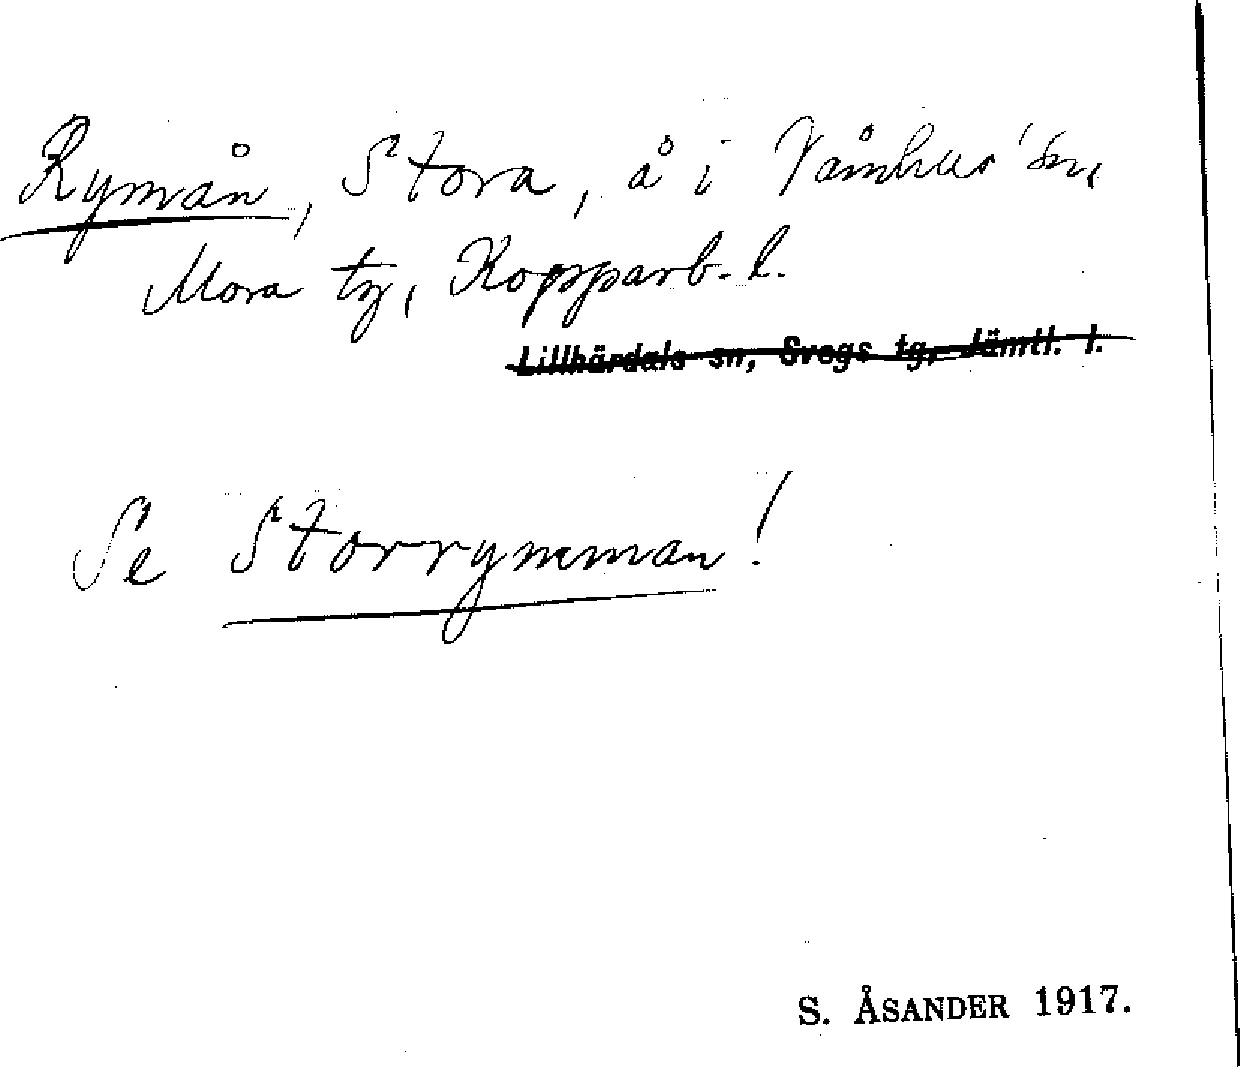 Rymån, Stora, å i Våmhus sn,
Mora tg, Kopparb. l.
Lillhärdals sn, Svegs tg, Jämtl. l.
Se Storrymman!
S. ÅSANDER 1917.